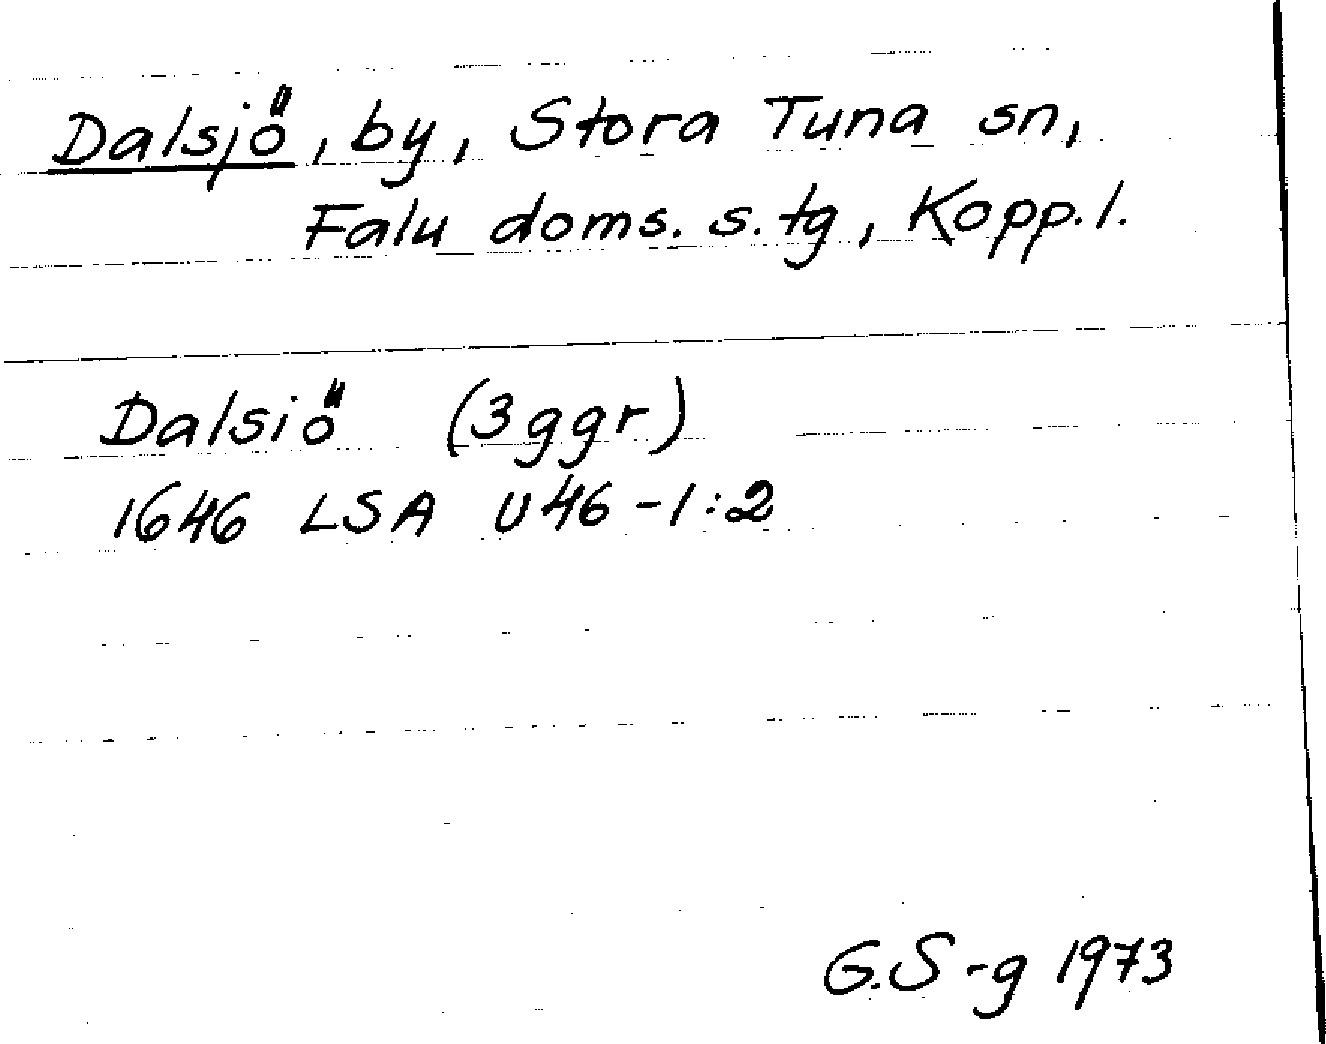 Dalsjö, by, Stora Tuna sn,
Falu doms. s. tg, Kopp. l.
Dalsiö (3 ggr)
1646 LSA U46-1:2
G.S-g 1973